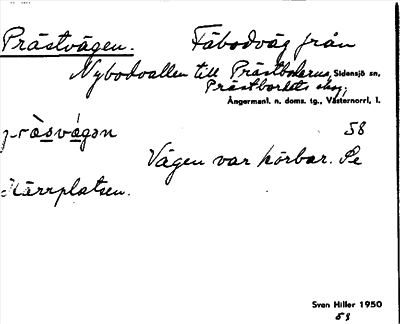 Prästvägen. Fäbodväg från
Nybodvallen till Prästbodarna, Sidensjö sn,
Prästbordets skog;
Ångermanl. n. doms. tg., Västernorrl. l.
prὰsvá̱gən 58
Vägen var körbar. Se
Kärrplatsen.
Sven Hiller 1950
58